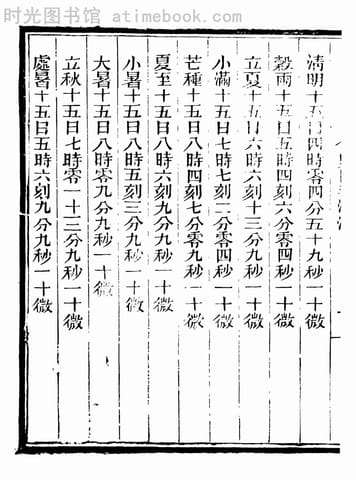 时光图书馆 www.atimebook.com
清明十五日四時零四分五十九秒一十微
穀雨十五日五時四刻六分零四秒一十微
立夏十五日六時十三分九秒一十微
小滿十五日七時七刻二分零四秒一十微
芒種十五日八時四刻七分零九秒一十微
夏至十五日八時六刻九分九秒一十微
小暑十五日八時五刻三分九秒一十微
大暑十五日八時零九分九秒一十微
立秋十五日七時零一十二分九秒一十微
處暑十五日五時六刻九分九秒一十微